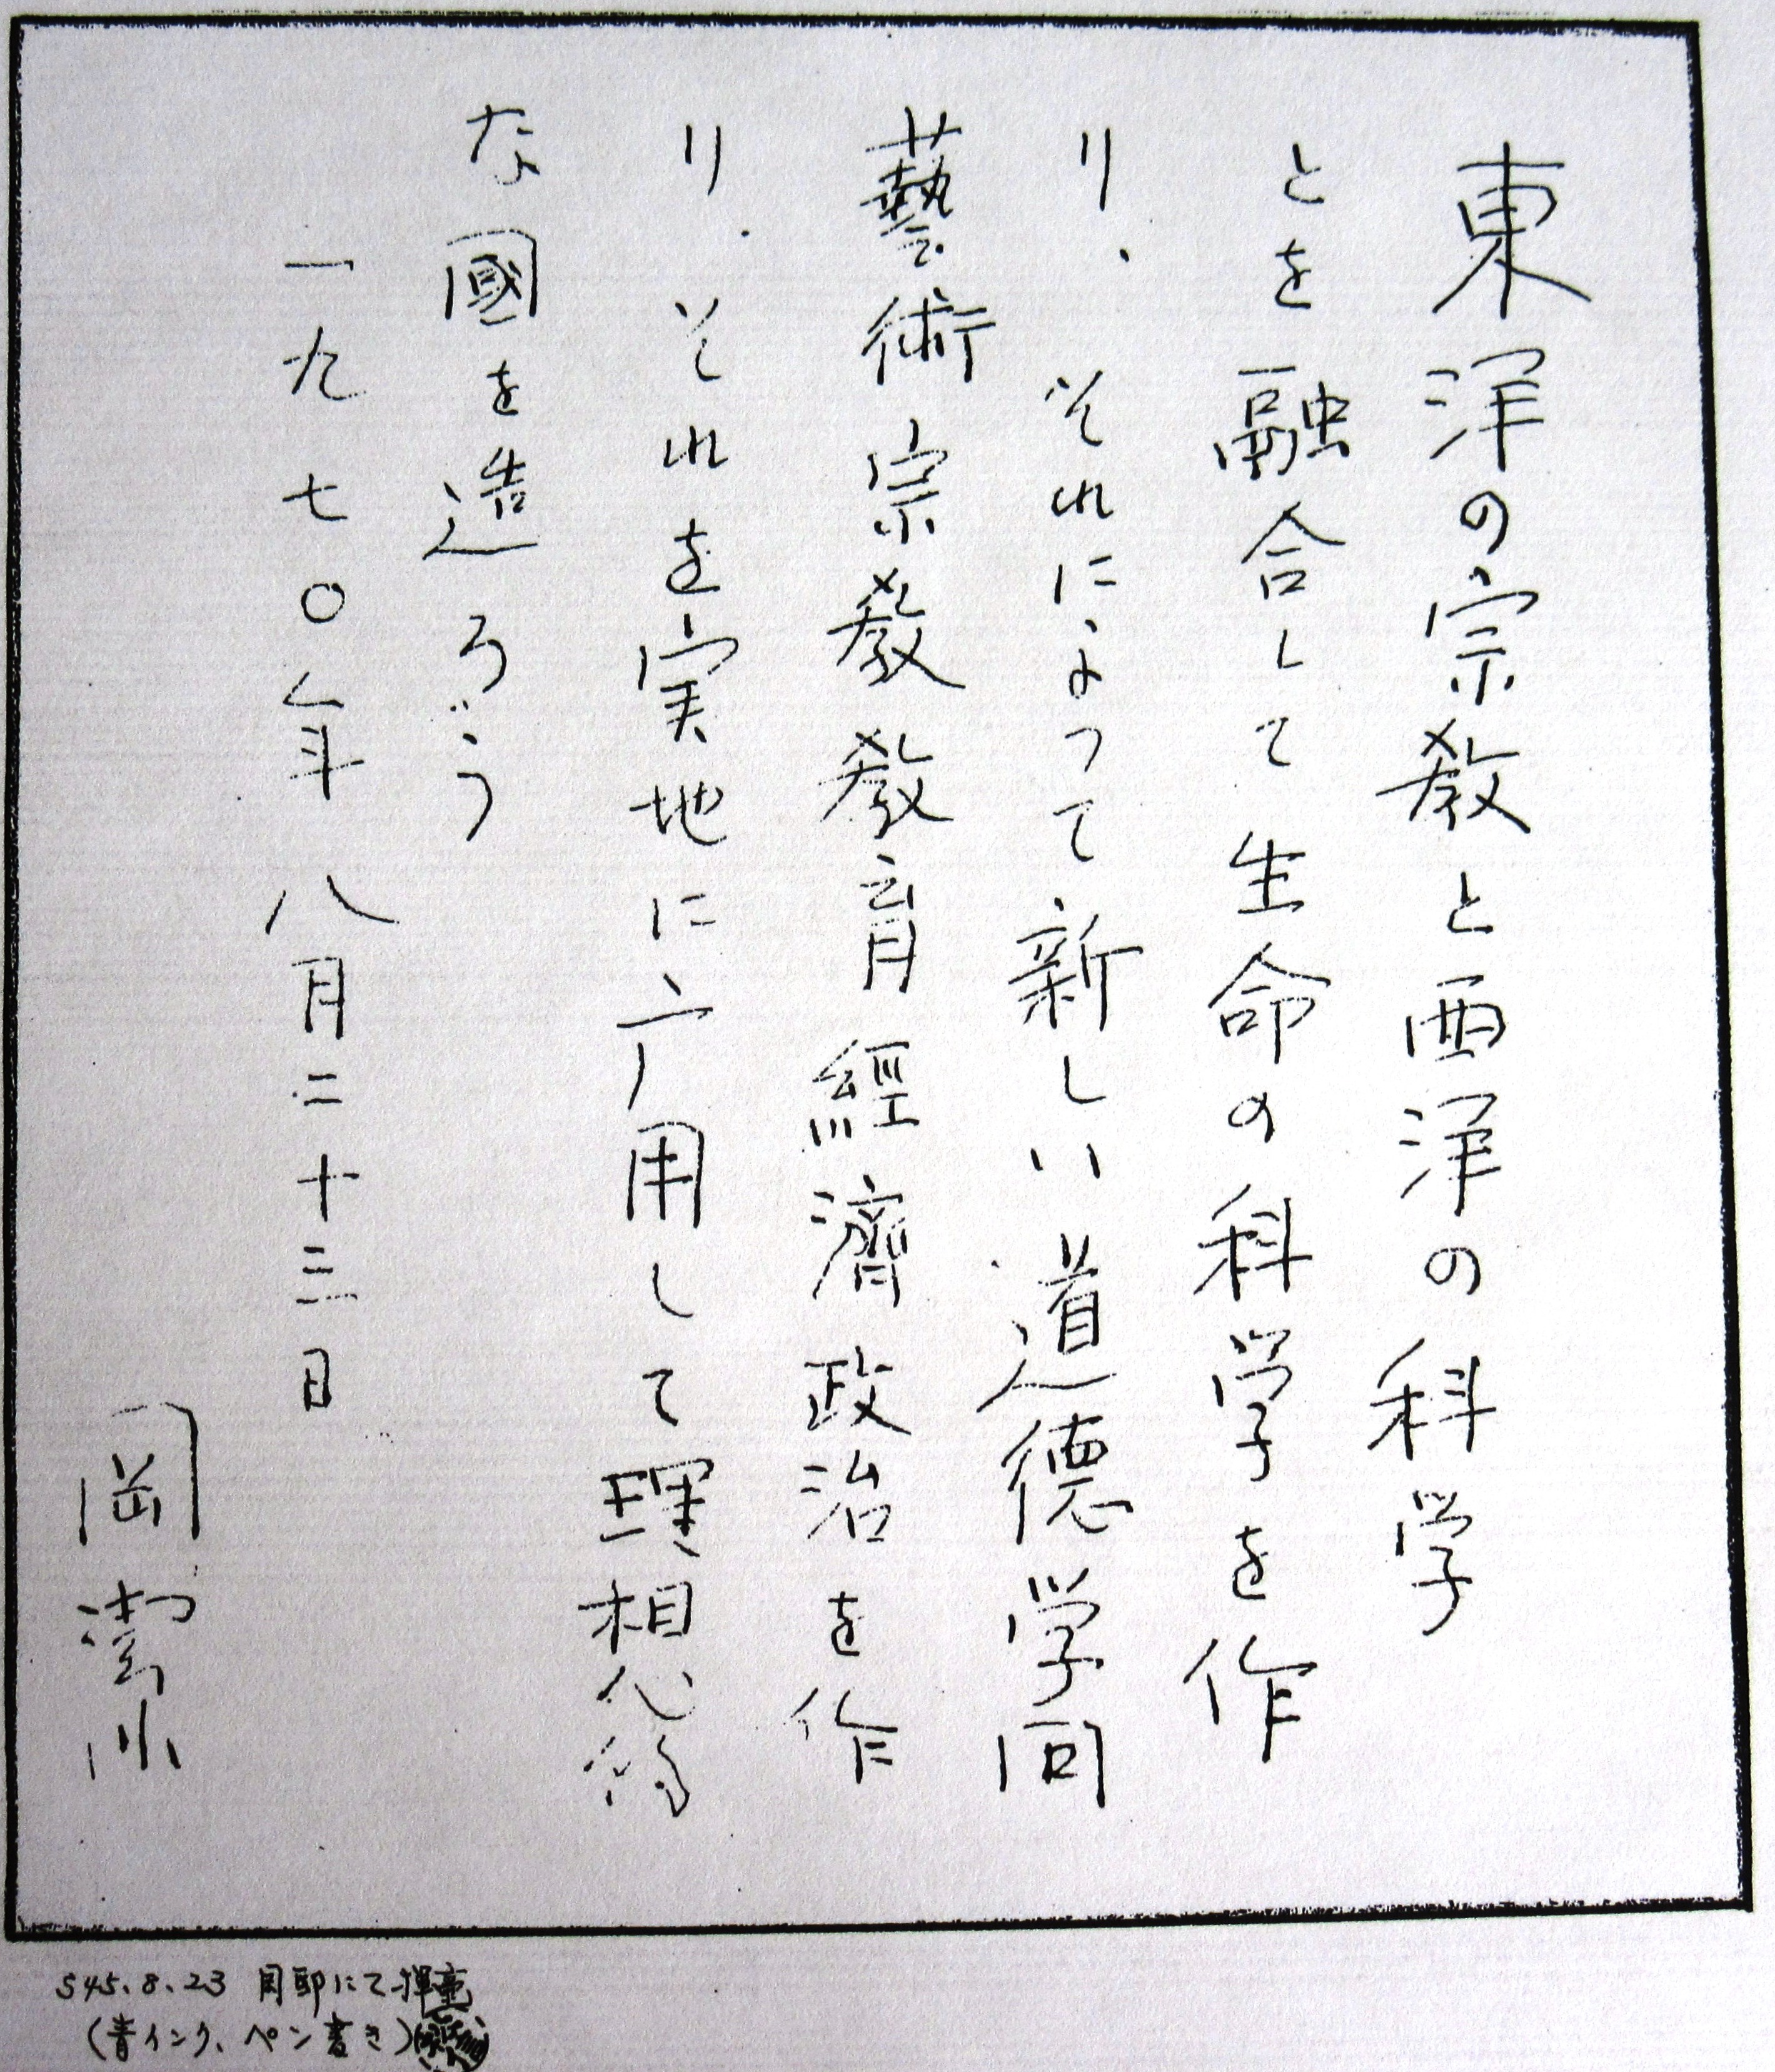 東洋の宗教と西洋の科学
とを融合して生命の科学を作
り、それによって新しい道德学問
藝術宗教教育經濟政治を作
り、それを実地に応用して理想的
な國を造ろう
一九七〇年八月二十三日
岡潔
S45.8.23 岡邸にて揮毫
(青インク、ペン書き)